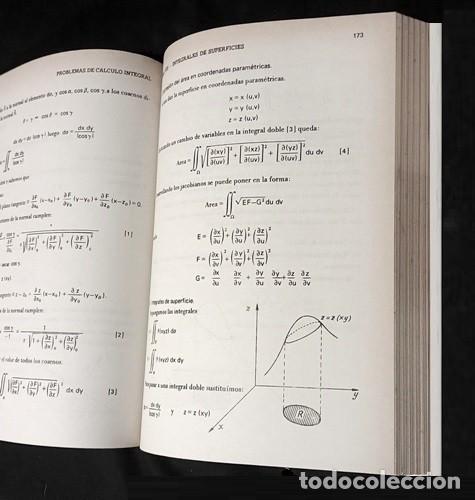 PROBLEMAS DE CALCULO INTEGRAL
la normal al elemento dσ, y cos α, cos β, cos γ, a los cosenos di-
la normal
dx dy = dσ |cos γ| luego dσ = dx dy / |cos γ|
sabemos que
plano tangente = ∂F/∂x₀ (x-x₀) + ∂F/∂y₀ (y-y₀) + ∂F/∂z₀ (z-z₀) = 0,
de la normal cumplen:
[1]
z (xy)
z - z₀ = ∂z/∂x₀ (x-x₀) + ∂z/∂y₀ (y-y₀)
de la normal cumplen:
[2]
el valor de todos los cosenos:
dx dy [3]
INTEGRALES DE SUPERFICIES 173
del área en coordenadas paramétricas.
la superficie en coordenadas paramétricas.
x = x (u,v)
y = y (u,v)
z = z (u,v)
un cambio de variables en la integral doble [3] queda:
Area = ∬Ω √([∂(xy)/∂(uv)]² + [∂(xz)/∂(uv)]² + [∂(yz)/∂(uv)]²) du dv [4]
los jacobianos se puede poner en la forma:
Area = ∬Ω √EF-G² du dv
E = (∂x/∂u)² + (∂y/∂u)² + (∂z/∂u)²
F = (∂x/∂v)² + (∂y/∂v)² + (∂z/∂v)²
G = ∂x/∂u ∂x/∂v + ∂y/∂u ∂y/∂v + ∂z/∂u ∂z/∂v
integrales de superficie.
las integrales
∬ F(xyz) dσ
∬ F(xyz) dx dy
pasar a una integral doble sustituímos:
dσ = dx dy / |cos γ| y z = z (xy)
z
z = z (xy)
y
x
R
todocoleccion